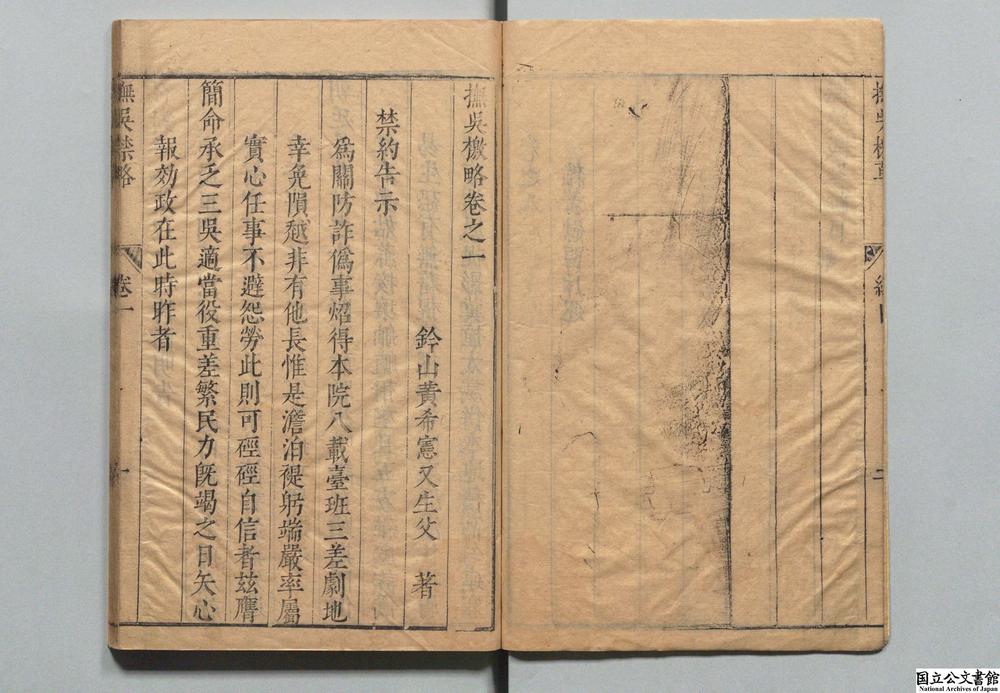 撫吳檄略卷之一
鈐山黃希憲又生父 著
禁約告示
爲關防詐僞事炤得本院八載臺班三差劇地
幸免隕越非有他長惟是澹泊禔躬端嚴率屬
實心任事不避怨勞此則可硜硜自信者茲膺
簡命承乏三吳適當役重差繁民力旣竭之日矢心
報効政在此時昨者
撫吳禁略 卷一 一
国立公文書館
National Archives of Japan